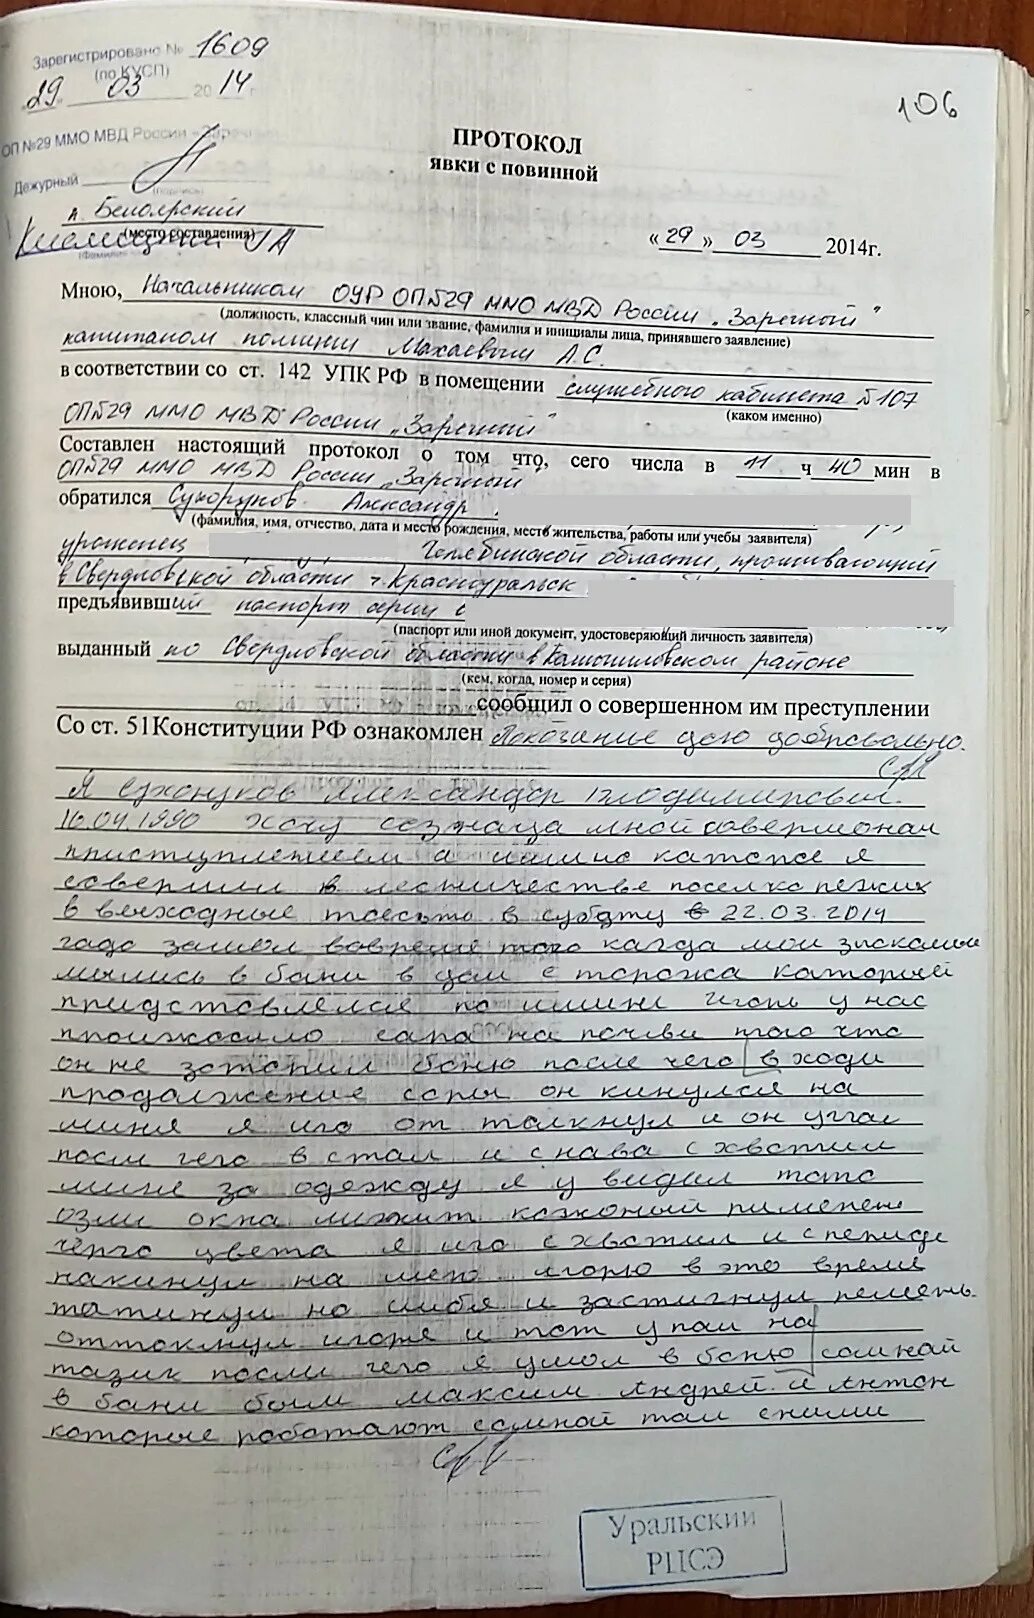 Зарегистрировано № 1609
(по КУСП)
29 03 2014 г.
106
ОП №29 ММО МВД России «Заречный
Дежурный
(подпись)
ПРОТОКОЛ
явки с повинной
п. Белоярский
(место составления)
«29» 03 2014г.
Мною, Начальником ОУР ОП№29 ММО МВД России „Заречный"
(должность, классный чин или звание, фамилия и инициалы лица, принявшего заявление)
капитаном полиции Махаевым А.С.
в соответствии со ст. 142 УПК РФ в помещении служебного кабинета №107
(каком именно)
ОП№29 ММО МВД России „Заречный"
Составлен настоящий протокол о том что, сего числа в 11 ч 40 мин в
ОП№29 ММО МВД России „Заречный"
обратился Сухоруков Александр
(фамилия, имя, отчество, дата и место рождения, место жительства, работы или учебы заявителя)
уроженец Челябинской области, проживающий
в Свердловской области г. Красноуральск
предъявивший паспорт серии
(паспорт или иной документ, удостоверяющий личность заявителя)
выданный по Свердловской области в Камышловском районе
(кем, когда, номер и серия)
сообщил о совершенном им преступлении
Со ст. 51Конституции РФ ознакомлен Показание даю добровольно.
Я Сухоруков Александр Владимирович.
16.04.1990 хочу сознаца мной совершонам
приступлением а имино каторое я
совершил в лестничестве поселка
в выходные тоесть в субдту в 22.03.2014
года зашол вовремя того кагда мои знакомые
мылись в бани в дом с торожа каторый
придстовлялся по имини Игорь у нас
произжосило сора на почви того что
он не затопил баню после чего в ходи
продолжение соры он кинулся на
миня я иго от талкнул и он упал
посли чего в стал и снава схватил
мине за одежду я у видил тото
озли окна лижит кожоный
черго цвета я иго схватил и спериди
накинул на шею Игорю в это время
на сибя и застигнул ремень.
оттокнул игоря и тот упал на
тазик посли чего я ушол в баню сомной
в бани были Максим Андрей и Антон
которые работают сомной там сними
Уральский
РЦСЭ